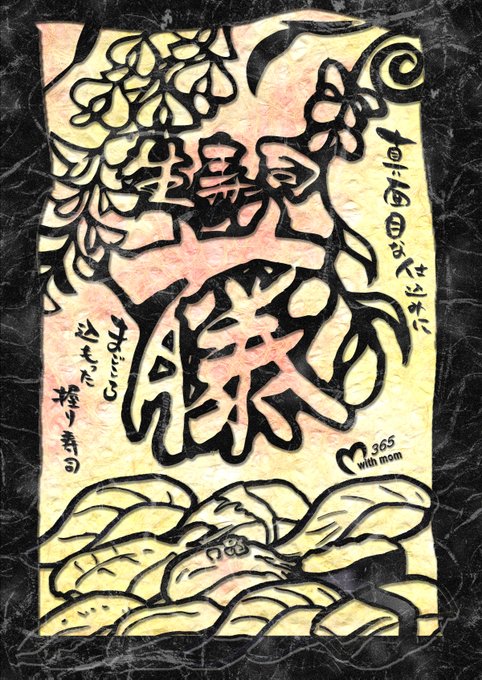 生寿司
藤
真面目な仕込みに
まごころ
込もった
握り寿司
365
with mom